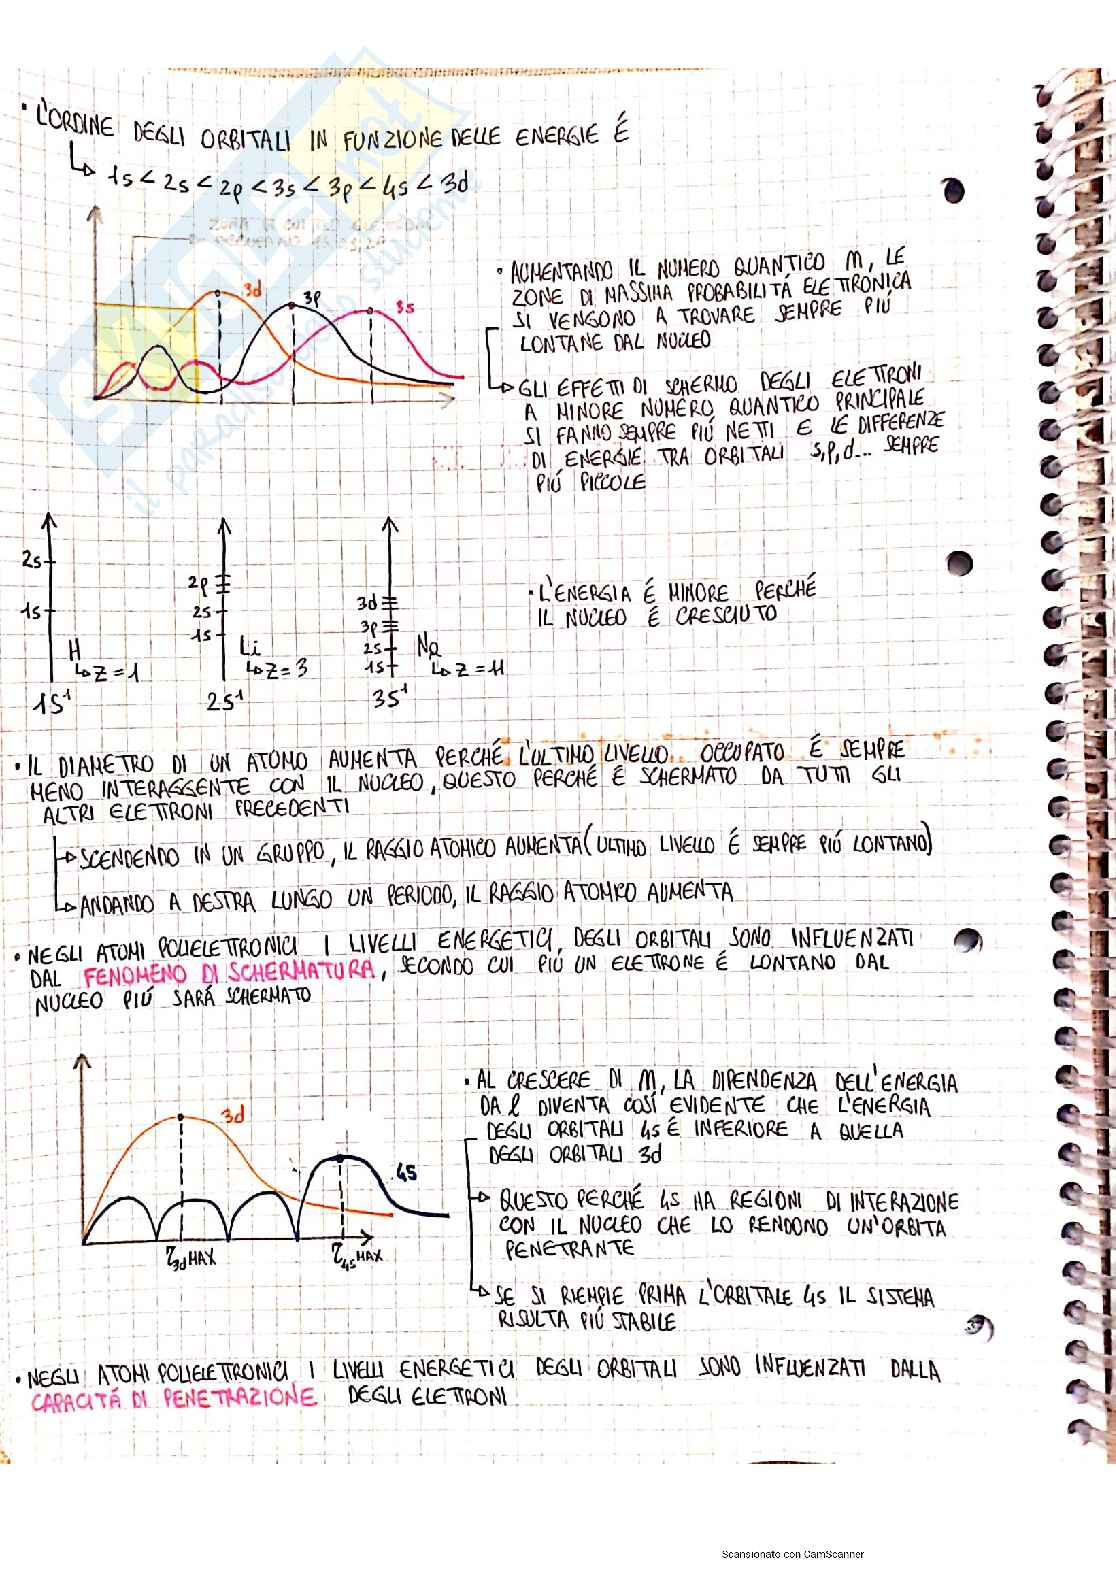 • L'ORDINE DEGLI ORBITALI IN FUNZIONE DELLE ENERGIE É
1s < 2s < 2p < 3s < 3p < 4s < 3d
3d
3p
3s
• AUMENTANDO IL NUMERO QUANTICO M, LE
ZONE DI MASSIMA PROBABILITÁ ELETTRONICA
SI VENGONO A TROVARE SEMPRE PIÚ
LONTANE DAL NUCLEO
GLI EFFETTI DI SCHERMO DEGLI ELETTRONI
A MINORE NUMERO QUANTICO PRINCIPALE
SI FANNO SEMPRE PIÚ NETTI E LE DIFFERENZE
DI ENERGIE TRA ORBITALI s,p,d... SEMPRE
PIÚ PICCOLE
2s
1s
H
Z=1
1S¹
2p
2s
1s
Li
Z=3
2S¹
3d
3p
2s
1s
Na
Z=11
3S¹
• L'ENERGIA É MINORE PERCHÉ
IL NUCLEO É CRESCIUTO
• IL DIAMETRO DI UN ATOMO AUMENTA PERCHÉ L'ULTIMO LIVELLO OCCUPATO É SEMPRE
MENO INTERAGENTE CON IL NUCLEO, QUESTO PERCHÉ É SCHERMATO DA TUTTI GLI
ALTRI ELETTRONI PRECEDENTI
SCENDENDO IN UN GRUPPO, IL RAGGIO ATOMICO AUMENTA (ULTIMO LIVELLO É SEMPRE PIÚ LONTANO)
ANDANDO A DESTRA LUNGO UN PERIODO, IL RAGGIO ATOMICO AUMENTA
• NEGLI ATOMI POLIELETTRONICI I LIVELLI ENERGETICI DEGLI ORBITALI SONO INFLUENZATI
DAL FENOMENO DI SCHERMATURA, SECONDO CUI PIÚ UN ELETTRONE É LONTANO DAL
NUCLEO PIÚ SARÁ SCHERMATO
3d
4s
r3d MAX
r4s MAX
• AL CRESCERE DI M, LA DIPENDENZA DELL'ENERGIA
DA l DIVENTA COSÍ EVIDENTE CHE L'ENERGIA
DEGLI ORBITALI 4s É INFERIORE A QUELLA
DEGLI ORBITALI 3d
QUESTO PERCHÉ 4s HA REGIONI DI INTERAZIONE
CON IL NUCLEO CHE LO RENDONO UN'ORBITA
PENETRANTE
SE SI RIEMPIE PRIMA L'ORBITALE 4s IL SISTEMA
RISULTA PIÚ STABILE
• NEGLI ATOMI POLIELETTRONICI I LIVELLI ENERGETICI DEGLI ORBITALI SONO INFLUENZATI DALLA
CAPACITÁ DI PENETRAZIONE DEGLI ELETTRONI
Scansionato con CamScanner